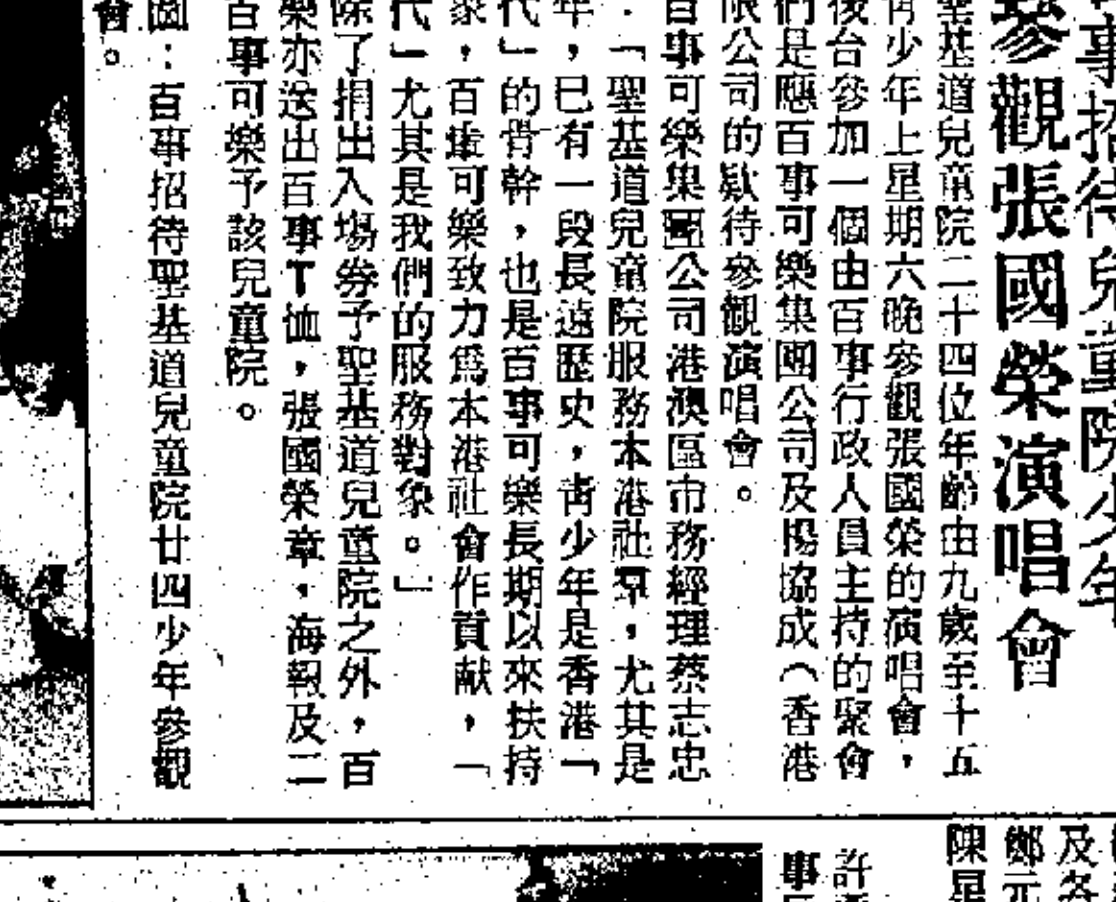 事招待兒童院少年
參觀張國榮演唱會
聖基道兒童院二十四位年齡由九歲至十五
青少年上星期六晚參觀張國榮的演唱會，
後台參加一個由百事行政人員主持的聚會
們是應百事可樂集團公司及楊協成（香港
限公司的欵待參觀演唱會。
百事可樂集團公司港澳區市務經理蔡志忠
：「聖基道兒童院服務本港社羣，尤其是
年，已有一段長遠歷史，靑少年是香港「
代」的骨幹，也是百事可樂長期以來扶持
象，百事可樂致力爲本港社會作貢献，「
代」尤其是我們的服務對象。」
除了捐出入場券予聖基道兒童院之外，百
樂亦送出百事T恤，張國榮章，海報及二
百事可樂予該兒童院。
圖：百事招待聖基道兒童院廿四少年參觀
會。
及各
鄭元
陳星
許
事